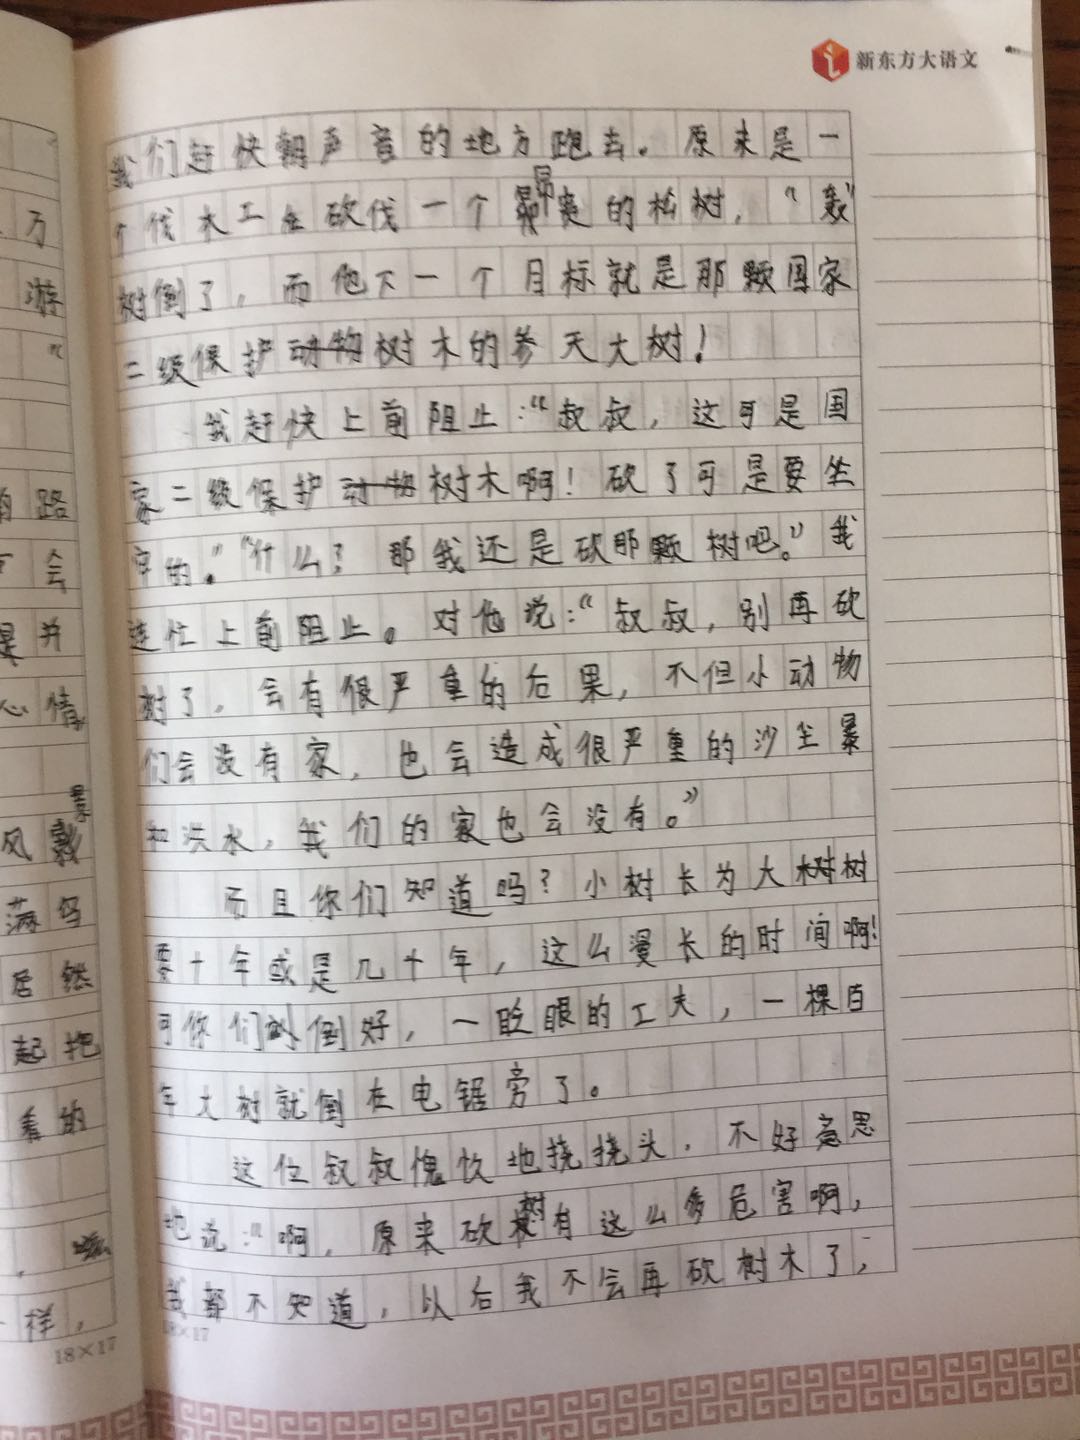 新东方大语文
我们赶快朝声音的地方跑去。原来是一
个伐木工在砍伐一个昂的松树，“轰”
树倒了，而他下一个目标就是那颗国家
二级保护动物树木的参天大树！
我赶快上前阻止：“叔叔，这可是国
家二级保护动物树木啊！砍了可是要坐
牢的。”“什么？那我还是砍那颗树吧。”我
连忙上前阻止。对他说：“叔叔，别再砍
树了，会有很严重的后果，不但小动物
们会没有家，也会造成很严重的沙尘暴
和洪水，我们的家也会没有。”
而且你们知道吗？小树长为大树树
要十年或是几十年，这么漫长的时间啊！
可你们倒好，一眨眼的工夫，一棵百
年大树就倒在电锯旁了。
这位叔叔愧饮地挠挠头，不好意思
地说：“啊，原来砍树有这么多危害啊，
我都不知道，以后我不会再砍树木了，
18×17
万
游
路
会
是并
心情
风暴
满鸟
居然
起把
看的
样，
18×17